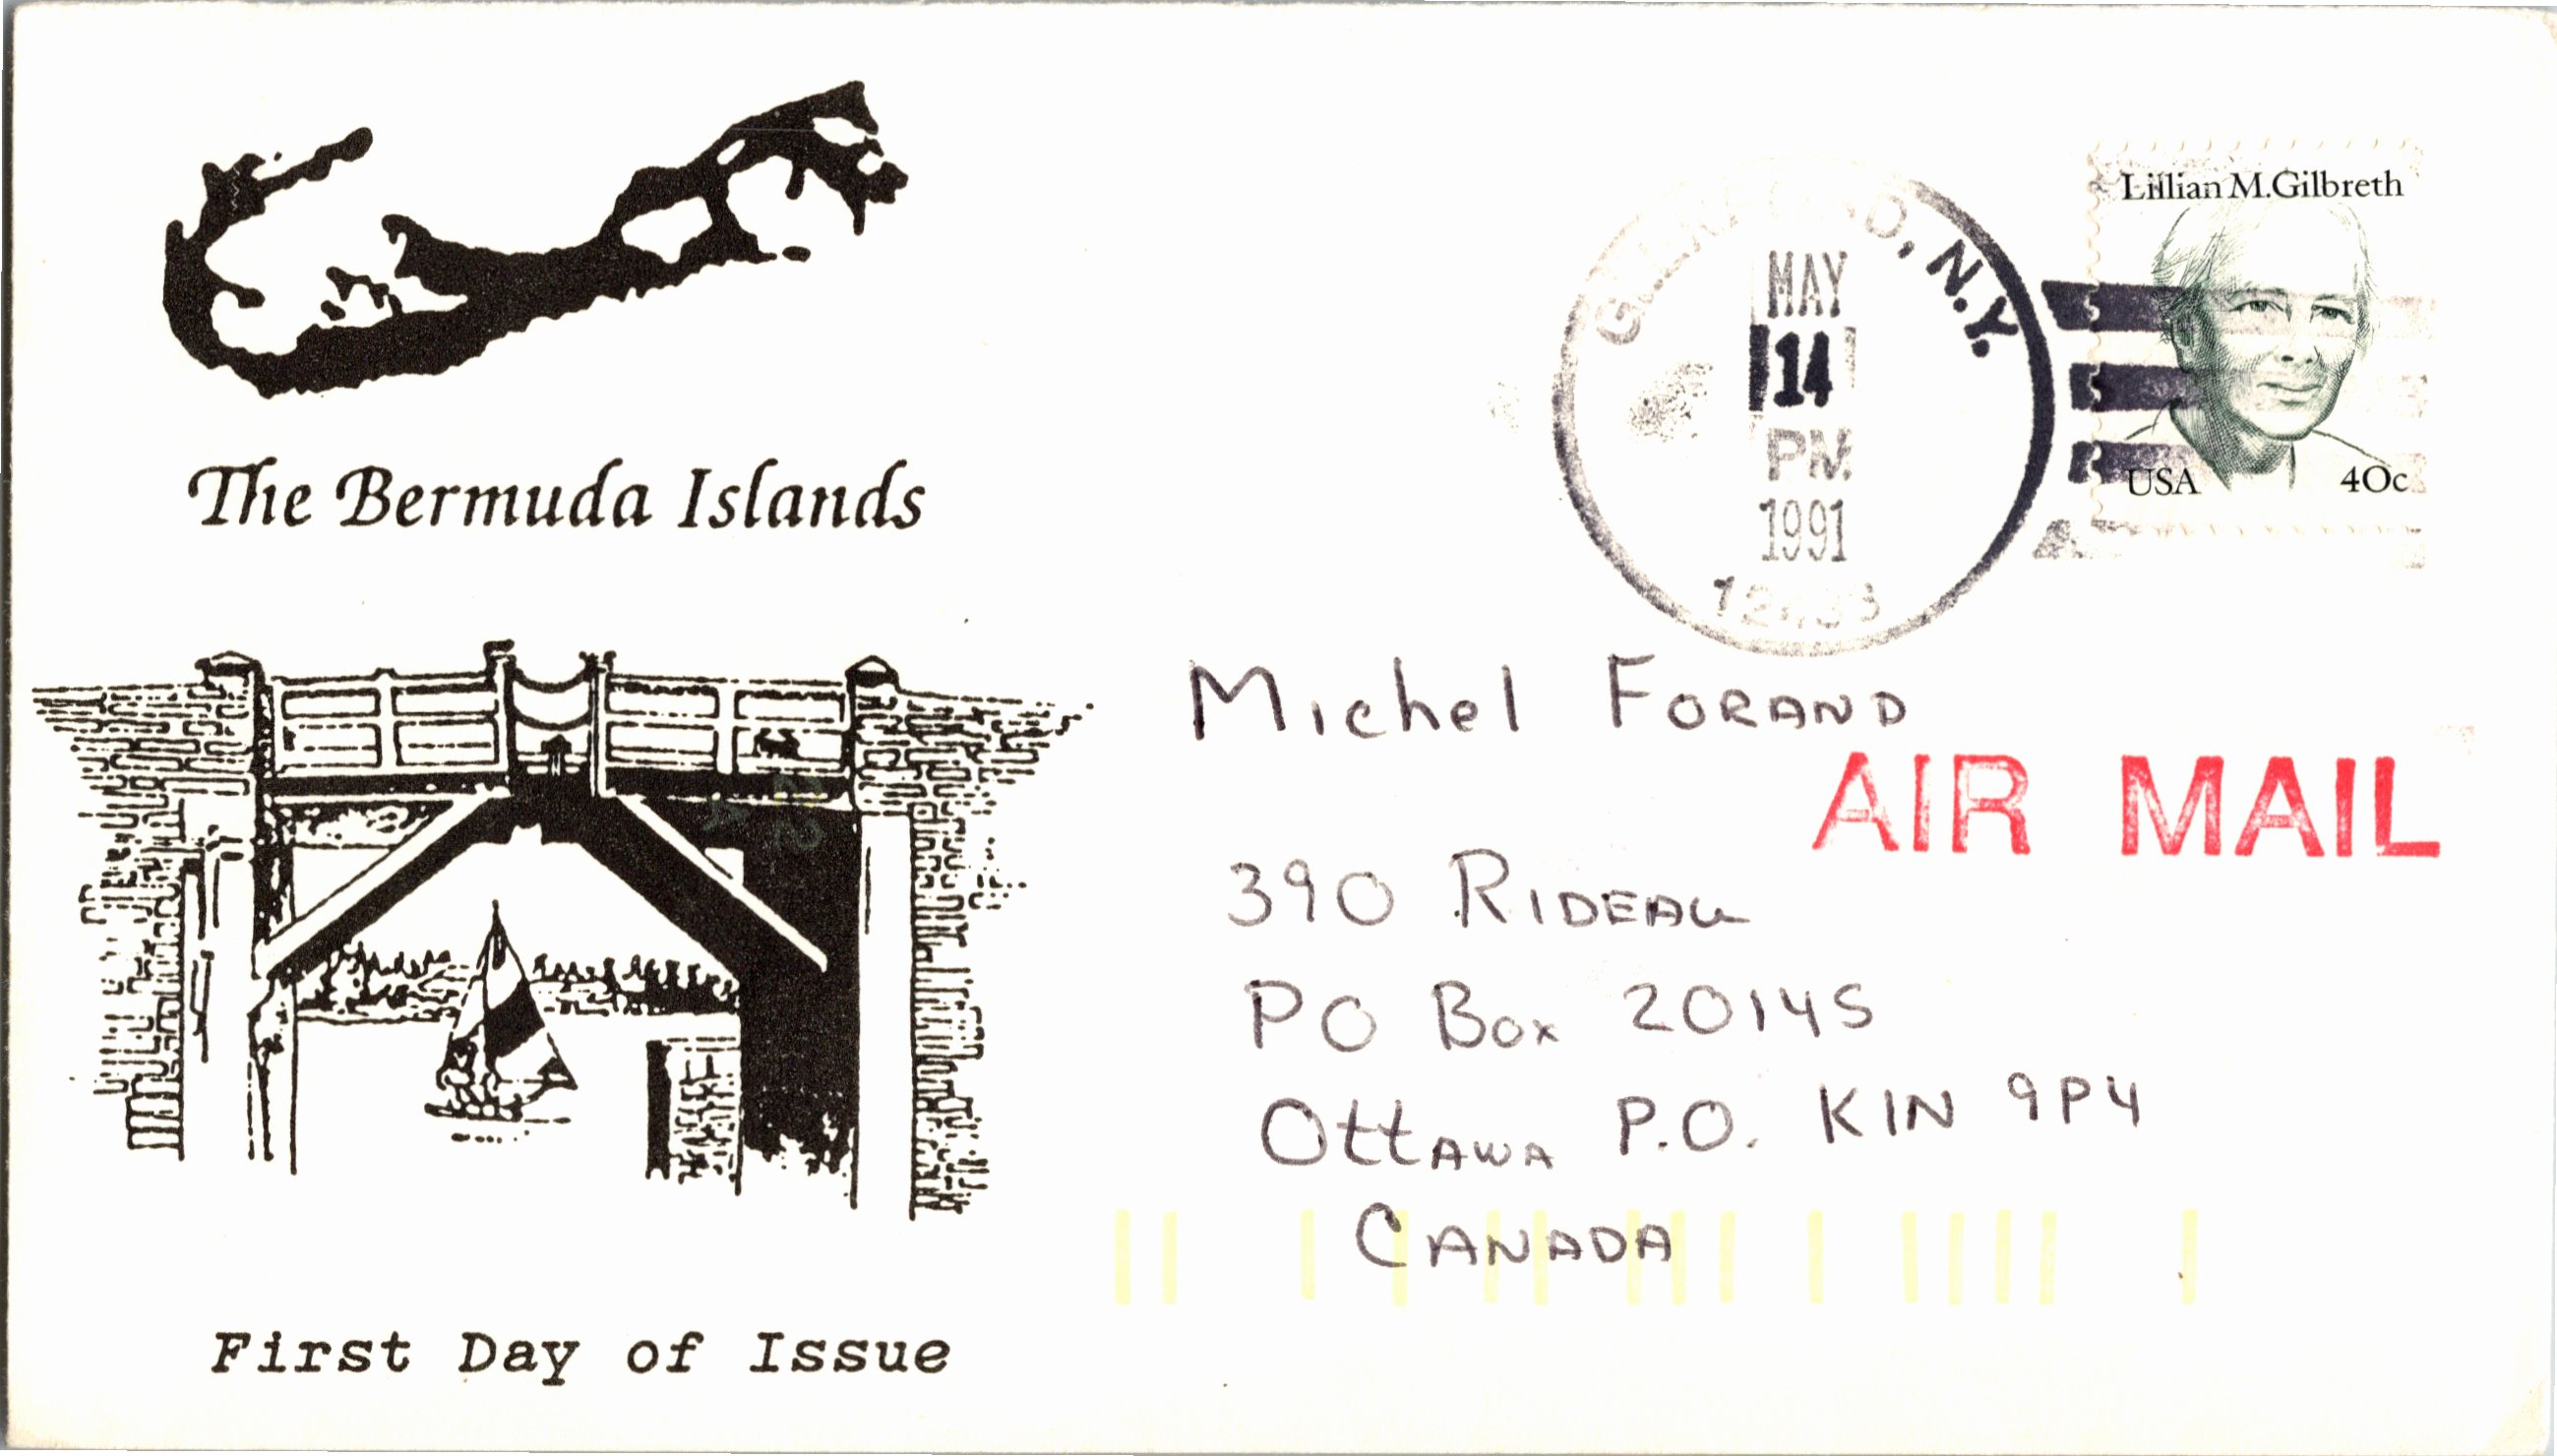 The Bermuda Islands
First Day of Issue
N.Y.
MAY
14
PM
1991
Lillian M. Gilbreth
USA 40c
Michel FORAND
AIR MAIL
390 RIDEAU
PO Box 20145
OttAWA P.O. KIN 9P4
CANADA